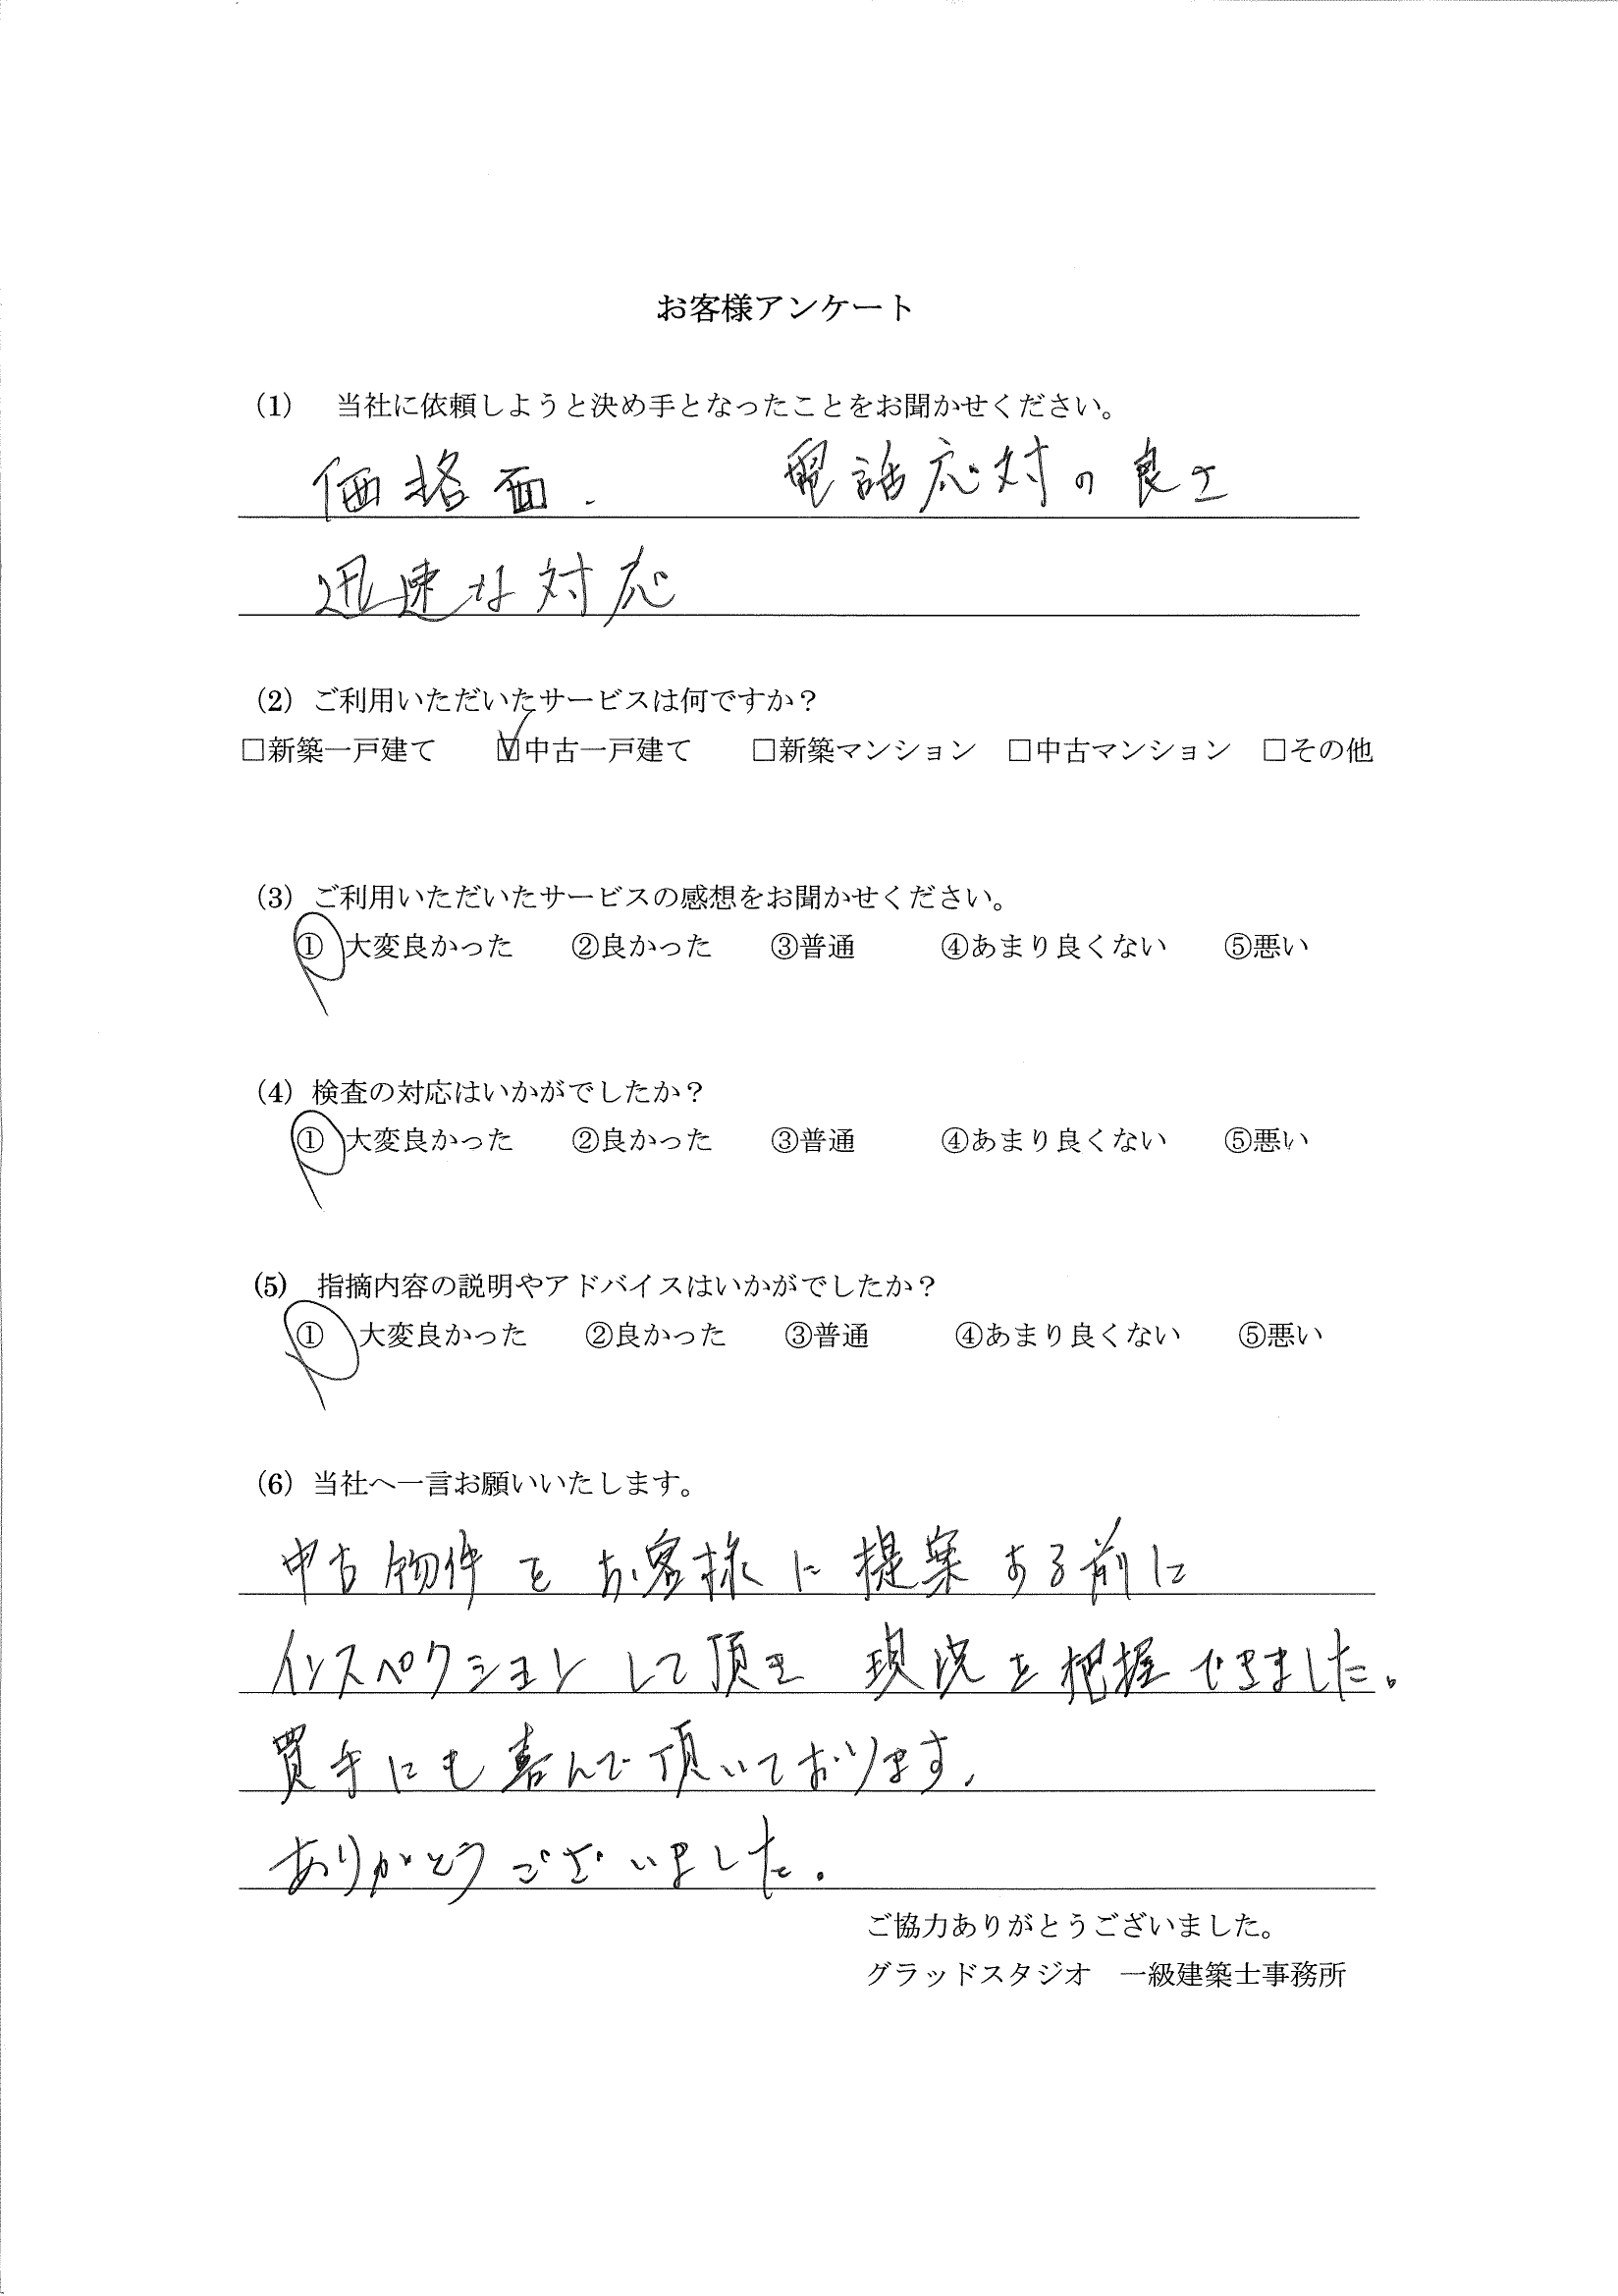 お客様アンケート
(1)　当社に依頼しようと決め手となったことをお聞かせください。
価格面、　電話応対の良さ
迅速な対応
(2) ご利用いただいたサービスは何ですか？
□新築一戸建て　☑中古一戸建て　□新築マンション　□中古マンション　□その他
(3) ご利用いただいたサービスの感想をお聞かせください。
①　大変良かった　②良かった　③普通　④あまり良くない　⑤悪い
(4) 検査の対応はいかがでしたか？
①　大変良かった　②良かった　③普通　④あまり良くない　⑤悪い
(5)　指摘内容の説明やアドバイスはいかがでしたか？
①　大変良かった　②良かった　③普通　④あまり良くない　⑤悪い
(6) 当社へ一言お願いいたします。
中古物件をお客様に提案する前に
インスペクションして頂き 現況を把握できました。
買手にも喜んで頂いております。
ありがとうございました。
ご協力ありがとうございました。
グラッドスタジオ　一級建築士事務所